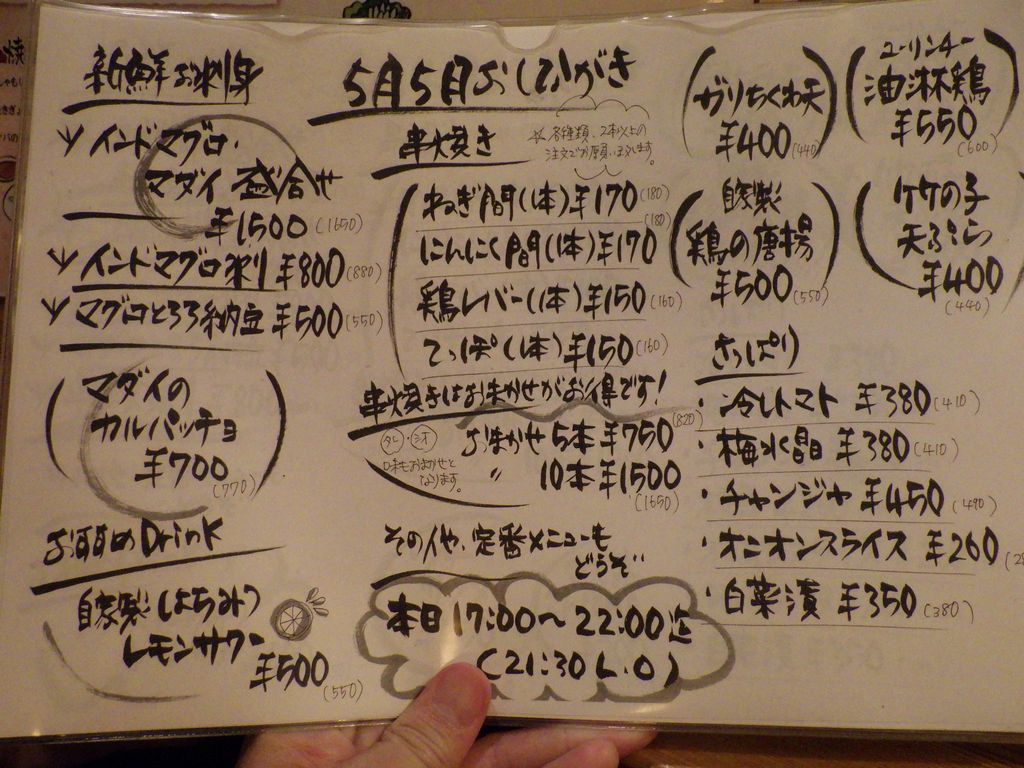 新鮮お刺身
インドマグロ・
マダイ 盛合せ
¥1500 (1650)
インドマグロ刺 ¥800 (880)
マグロとろろ納豆 ¥500 (550)
マダイの
カルパッチョ
¥700
(770)
お奨めDrink
自家製はちみつ
レモンサワー
¥500
(550)
5月5日おしながき
串焼き
☆各種類、2本以上の
注文でお願い致します。
ねぎ間(1本)¥170 (180)
にんにく間(1本)¥170 (180)
鶏レバー(1本)¥150 (160)
てっぽう(1本)¥150 (160)
串焼きはおまかせがお得です!
タレ・汐
口味もおまかせと
なります。
おまかせ 5本¥750 (820)
〃 10本¥1500
(1650)
その他、定番メニューも
どうぞ
本日 17:00～22:00迄
(21:30 L.O)
ガリちくわ天
¥400 (440)
ユーリンチー
油淋鶏
¥550
(600)
自家製
鶏の唐揚
¥500 (550)
竹の子
天ぷら
¥400
(440)
さっぱり
・冷しトマト ¥380 (410)
・梅水晶 ¥380 (410)
・チャンジャ ¥450 (490)
・オニオンスライス ¥260
・白菜漬 ¥350 (380)